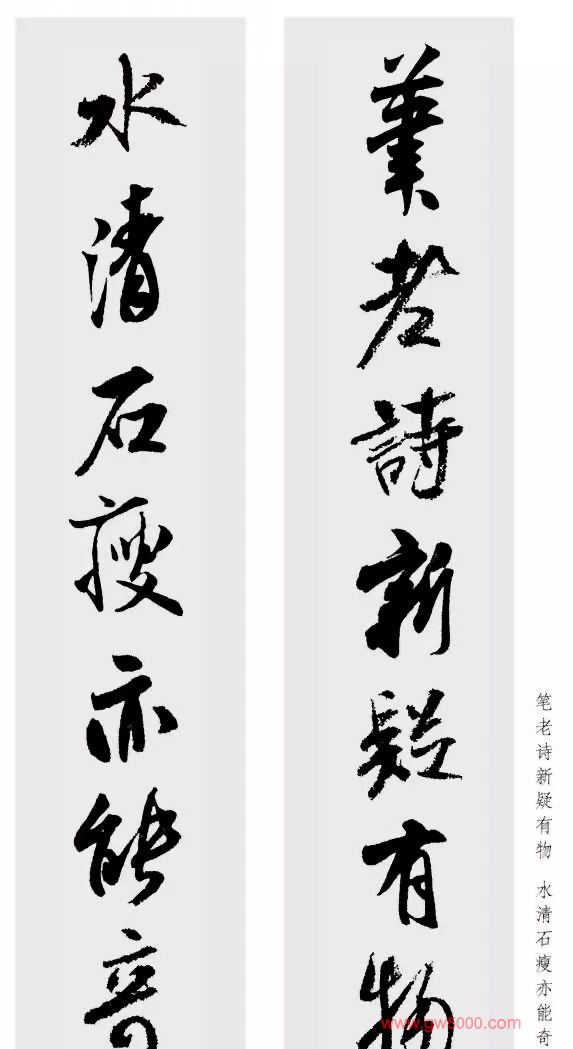 筆老詩新疑有物
水清石瘦亦能奇
笔老诗新疑有物 水清石瘦亦能奇
www.gw5000.com